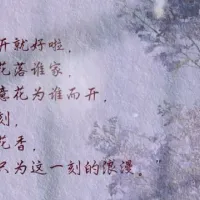 开就好啦，
花落谁家，
意花为谁而开，
刻，
花香，
只为这一刻的浪漫。"